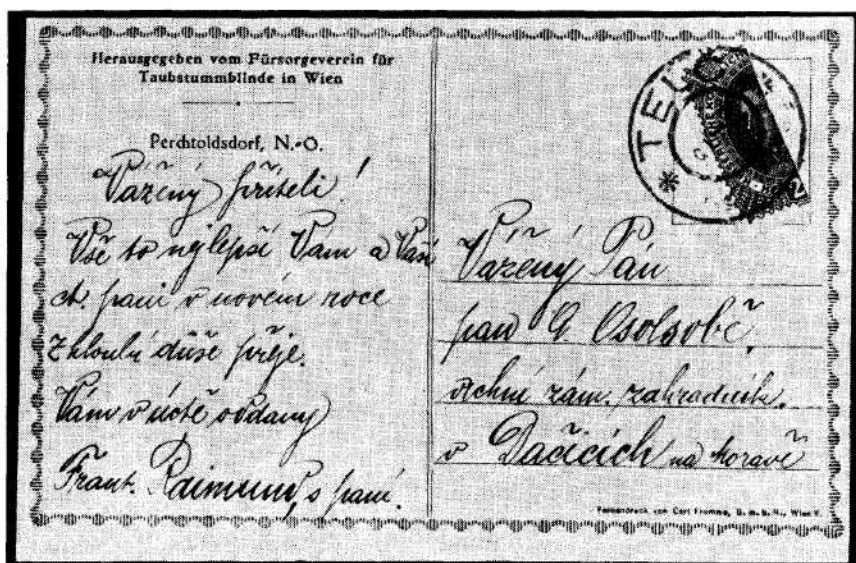 Herausgegeben vom Fürsorgeverein für
Taubstummblinde in Wien
Perchtoldsdorf, N.-Ö.
Vážený příteli!
Vše to nejlepší Vám a Vaší
ct. paní v novém roce
z hloubi duše přeje.
Vám v úctě oddaný
Frant. Raimund, s paní.
TELČ
2
Vážený Pán
pan G. Osolsobě,
vrchní zám. zahradník.
v Dačicích na Moravě
Farbendruck von Carl Fromme, G. m. b. H., Wien V.